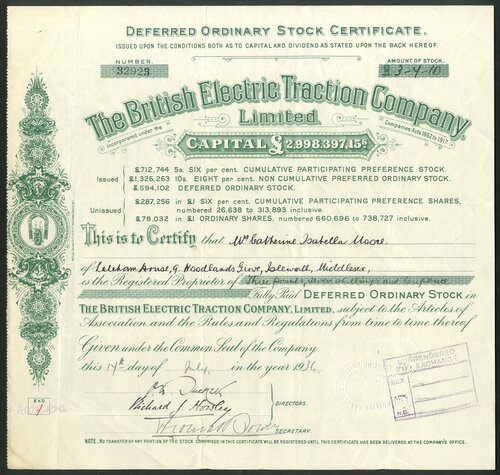 DEFERRED ORDINARY STOCK CERTIFICATE.
ISSUED UPON THE CONDITIONS BOTH AS TO CAPITAL AND DIVIDEND AS STATED UPON THE BACK HEREOF.
NUMBER
32923
AMOUNT OF STOCK.
£3-7-10
The British Electric Traction Company,
Incorporated under the
Limited
Companies Acts 1862 to 1917
CAPITAL £2,998,397.15s
Issued
£712,744 5s. SIX per cent. CUMULATIVE PARTICIPATING PREFERENCE STOCK.
£1,326,263 10s. EIGHT per cent. NON CUMULATIVE PREFERRED ORDINARY STOCK.
£594,102 DEFERRED ORDINARY STOCK.
Unissued
£287,256 in £1 SIX per cent. CUMULATIVE PARTICIPATING PREFERENCE SHARES,
numbered 26,638 to 313,893 inclusive.
£78,032 in £1 ORDINARY SHARES, numbered 660,696 to 738,727 inclusive.
This is to Certify that Mrs Catherine Isabella Moore.
of Laleham House, 9, Woodlands Grove, Isleworth, Middlesex,
is the Registered Proprietor of Three pounds, seven shillings and tenpence
Fully Paid DEFERRED ORDINARY STOCK in
THE BRITISH ELECTRIC TRACTION COMPANY, LIMITED, subject to the Articles of
Association and the Rules and Regulations from time to time thereof
Given under the Common Seal of the Company
this 14th day of July, in the year 1936.
Richard J. Howley
DIRECTORS.
SECRETARY.
SURRENDERED
FOR EXCHANGE
EXD.
NOTE. NO TRANSFER OF ANY PORTION OF THE STOCK COMPRISED IN THIS CERTIFICATE WILL BE REGISTERED UNTIL THIS CERTIFICATE HAS BEEN DELIVERED AT THE COMPANY'S OFFICE.